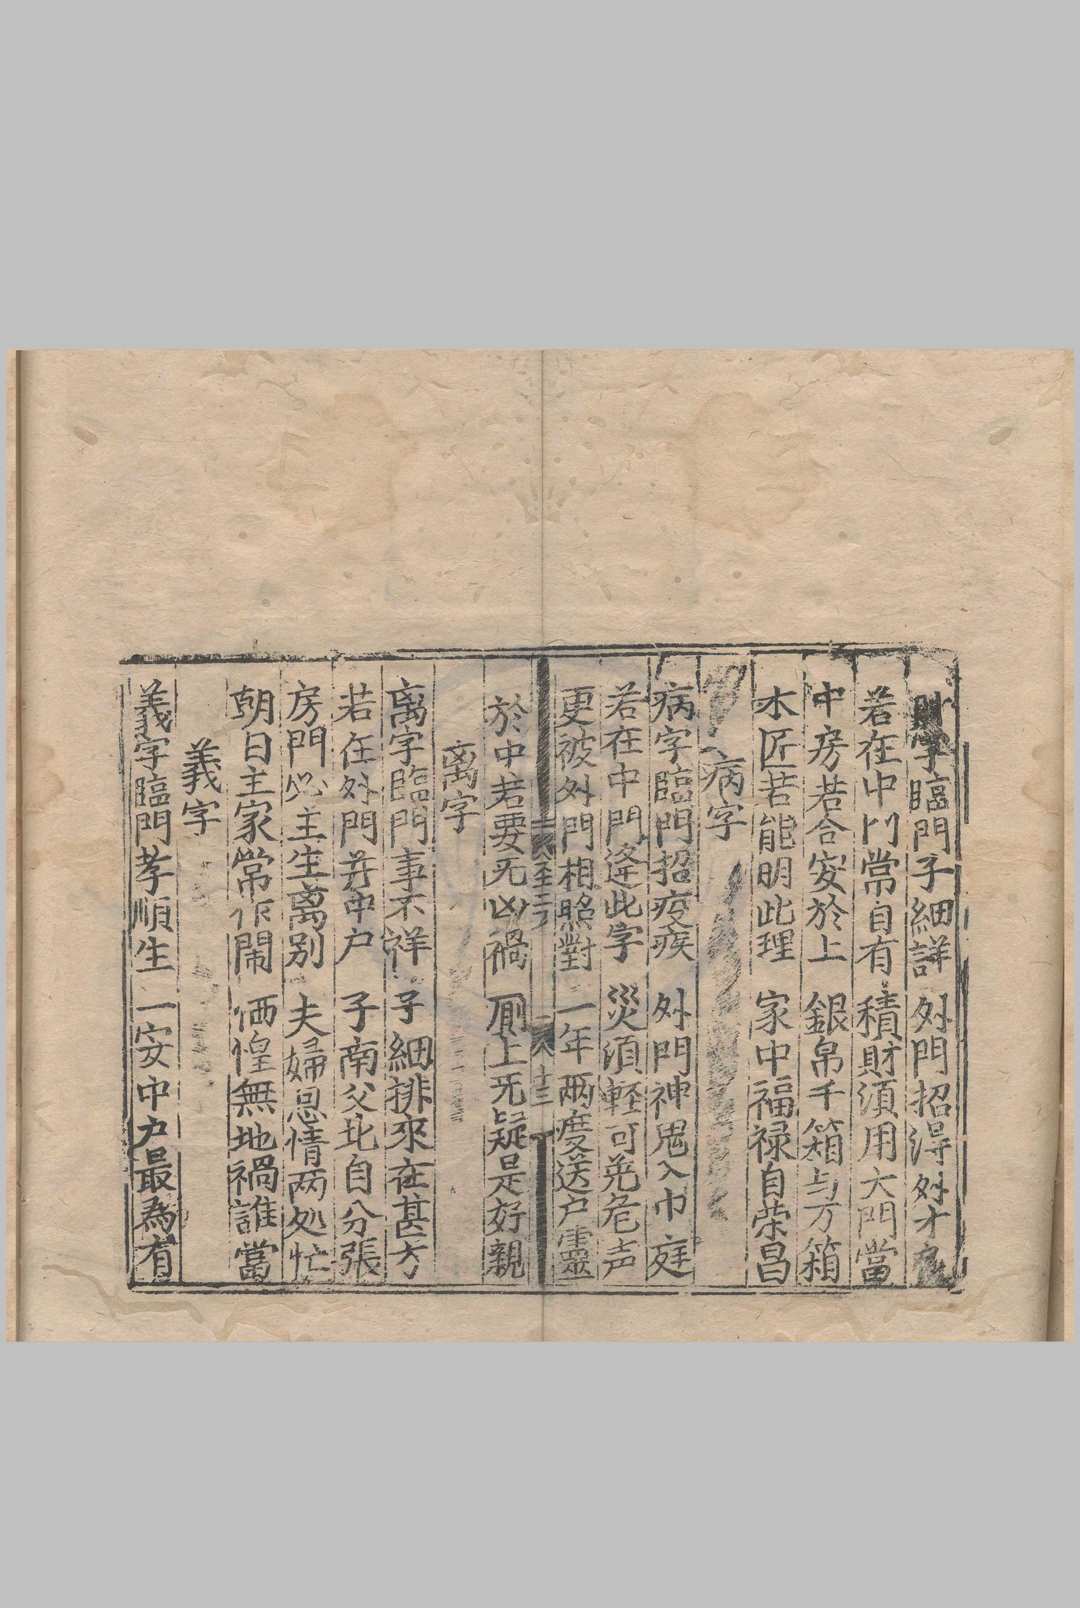 財字臨門子細詳 外門招淂外才
若在中门常自有 積財須用大門當
中房若合安於上 銀帛千箱与万箱
木匠若能明此理 家中福禄自荣昌
病字
病字臨門招疫疾 外門神鬼入巾庭
若在中門逢此字 災須軽可免危声
更被外門相照對 一年兩度送户靈
於中若要旡凶禍 厠上旡疑是好親
离字
离字臨門事不祥 子細排來在甚方
若在外門并中户 子南父北自分張
房門必主生离别 夫婦恩情两処忙
朝日主家常作鬧 恓惶無地禍誰當
義字
義字臨門孝順生 一安中户最為有